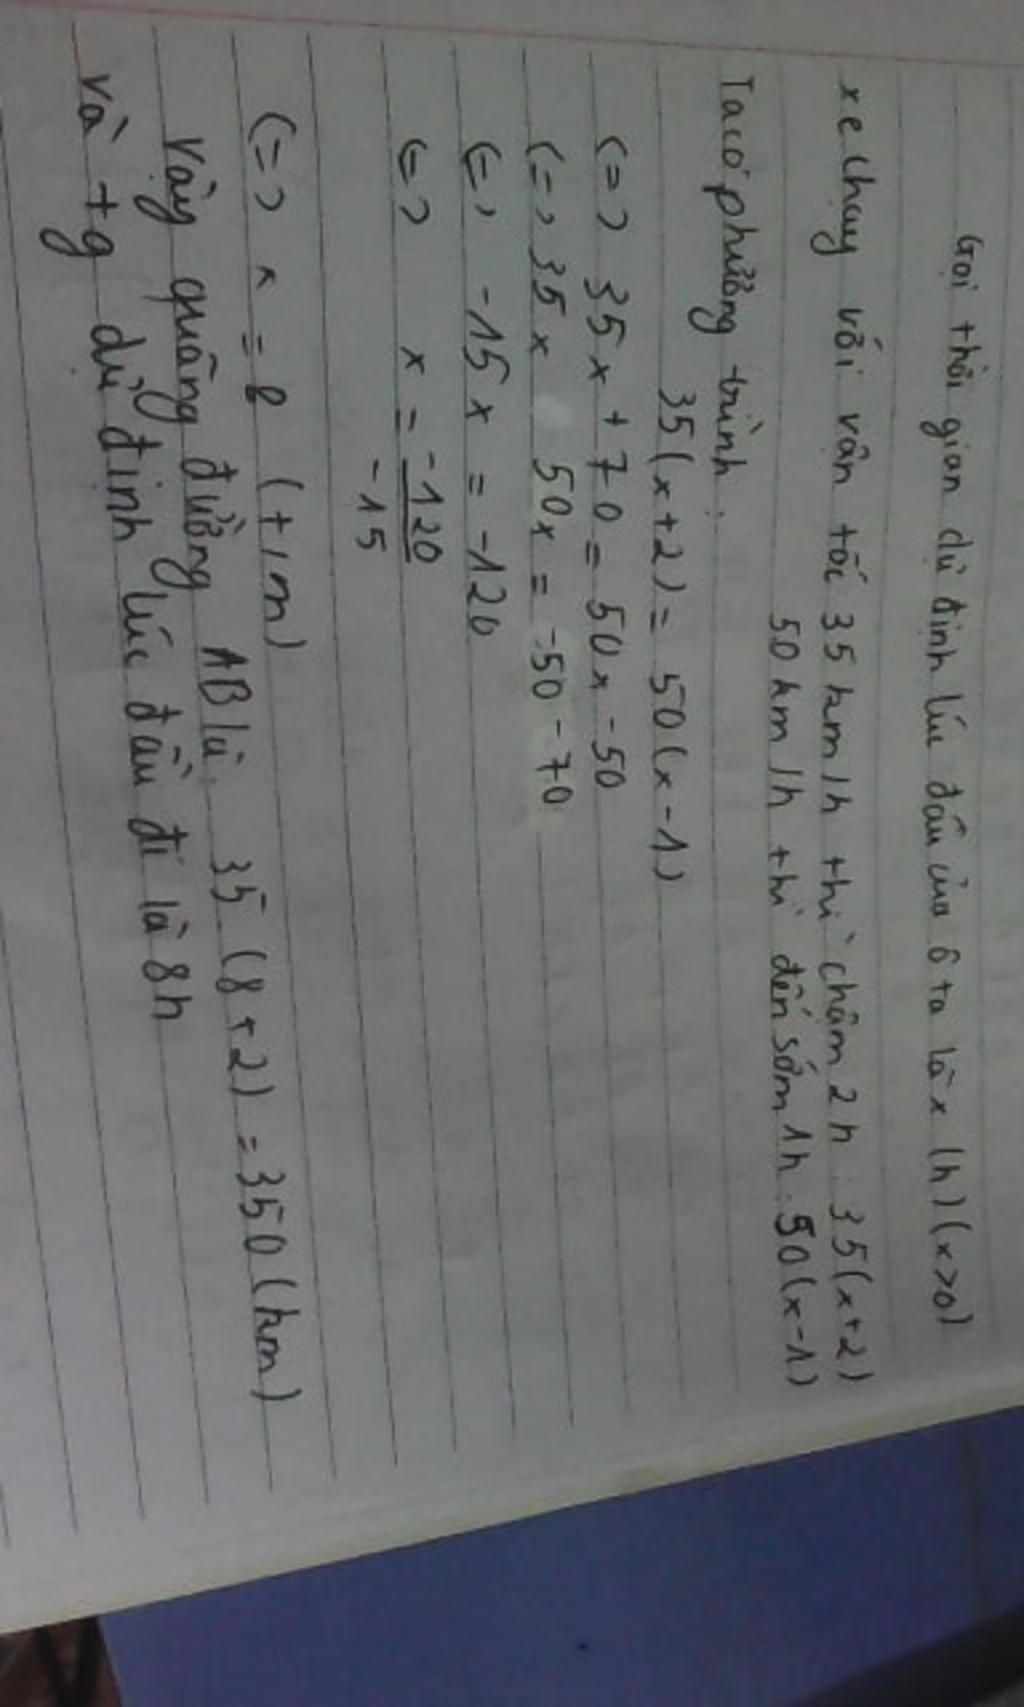 Gọi thời gian dự định lúc đầu của ô tô là x (h) (x>0)
xe chạy với vận tốc 35 km/h thì chậm 2h : 35(x+2)
50 km/h thì đến sớm 1h : 50(x-1)
Ta có phương trình :
35(x+2) = 50(x-1)
(=) 35x + 70 = 50x - 50
(=) 35x 50x = -50 - 70
(=) -15x = -120
(=) x = -120/-15
(=) x = 8 (t/m)
Vậy quãng đường AB là 35 (8+2) = 350 (km)
và tg dự định lúc đầu đi là 8h